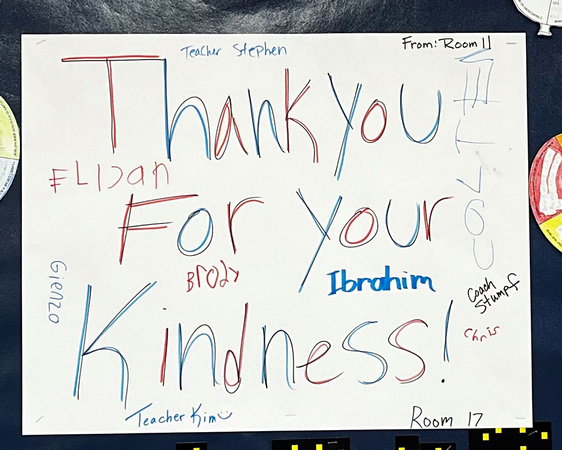 Teacher Stephen
From: Room 11
Thank you
ELIJAH
For your
Brody
Ibrahim
Gienzo
Coach
Stumpf
Chris
Kindness!
Teacher Kim
Room 17